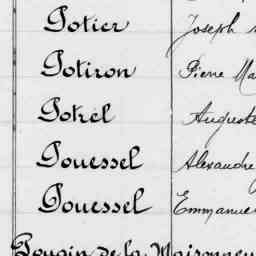 Potier Joseph
Potiron Pierre Ma
Potrel Auguste
Pouessel Alexandre
Pouessel Emmanue
Pougin de la Maisonneu